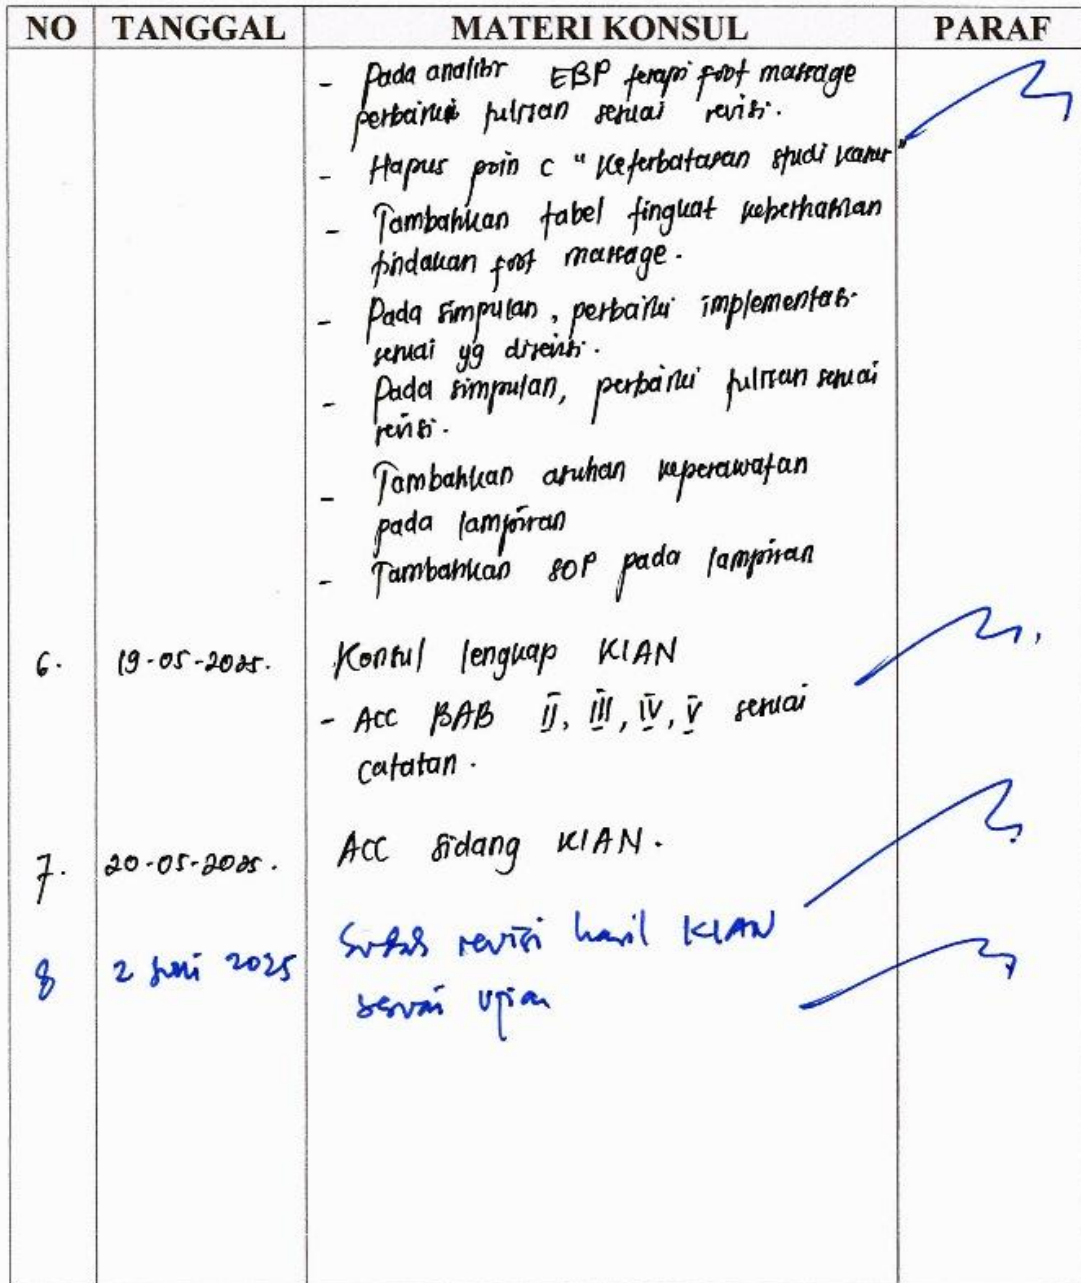 NO TANGGAL MATERI KONSUL PARAF
- Pada analisis EBP terapi foot massage
perbaiki tulisan sesuai revisi.
- Hapus poin c "Keterbatasan studi kasus"
- Tambahkan tabel tingkat keberhasilan
tindakan foot massage.
- Pada simpulan, perbaiki implementasi
sesuai yg direvisi.
- Pada simpulan, perbaiki tulisan sesuai
revisi.
- Tambahkan asuhan keperawatan
pada lampiran
- Tambahkan SOP pada lampiran
6. 19-05-2025. Konsul lengkap KIAN
- Acc BAB II, III, IV, V sesuai
catatan.
7. 20-05-2025. Acc sidang KIAN.
8 2 Juni 2025 revisi hasil KIAN
sesuai ujian